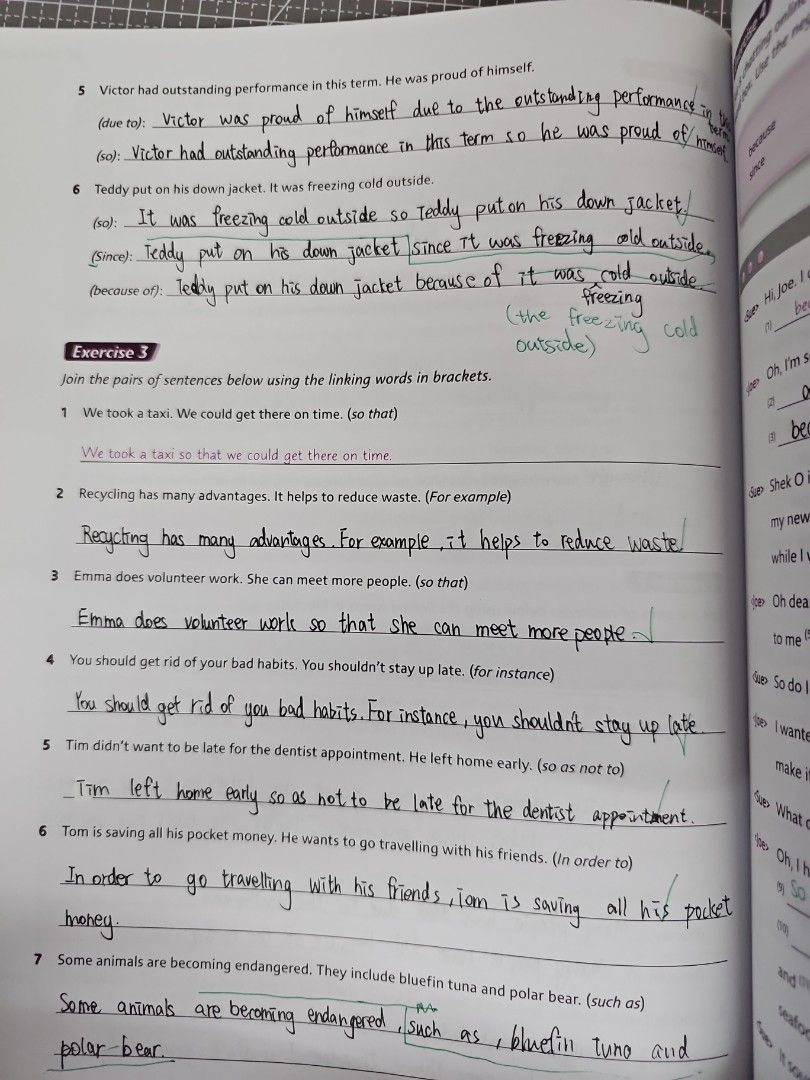 5 Victor had outstanding performance in this term. He was proud of himself.
(due to): Victor was proud of himself due to the outstanding performance in this term
(so): Victor had outstanding performance in this term so he was proud of himself
6 Teddy put on his down jacket. It was freezing cold outside.
(so): It was freezing cold outside so Teddy put on his down jacket
(Since): Teddy put on his down jacket since it was freezing cold outside.
(because of): Teddy put on his down jacket because of it was cold outside.
freezing
(the freezing cold
outside)
Exercise 3
Join the pairs of sentences below using the linking words in brackets.
1 We took a taxi. We could get there on time. (so that)
We took a taxi so that we could get there on time.
2 Recycling has many advantages. It helps to reduce waste. (For example)
Recycling has many advantages. For example, it helps to reduce waste
3 Emma does volunteer work. She can meet more people. (so that)
Emma does volunteer work so that she can meet more people.
4 You should get rid of your bad habits. You shouldn't stay up late. (for instance)
You should get rid of you bad habits. For instance, you shouldn't stay up late.
5 Tim didn't want to be late for the dentist appointment. He left home early. (so as not to)
Tim left home early so as not to be late for the dentist appointment.
6 Tom is saving all his pocket money. He wants to go travelling with his friends. (In order to)
In order to go travelling with his friends, Tom is saving all his pocket
money.
7 Some animals are becoming endangered. They include bluefin tuna and polar bear. (such as)
Some animals are becoming endangered, such as, bluefin tuna and
polar bear.
because
since
Sue> Hi, Joe. I
(1)
Joe> Oh, I'm s
(2)
(3) bec
Sue> Shek O i
my new
while I
Joe> Oh dea
to me
Sue> So do I
Joe> I wante
make i
Sue> What
Joe> Oh, I h
(9) So
(10)
and
seafoo
Sue>